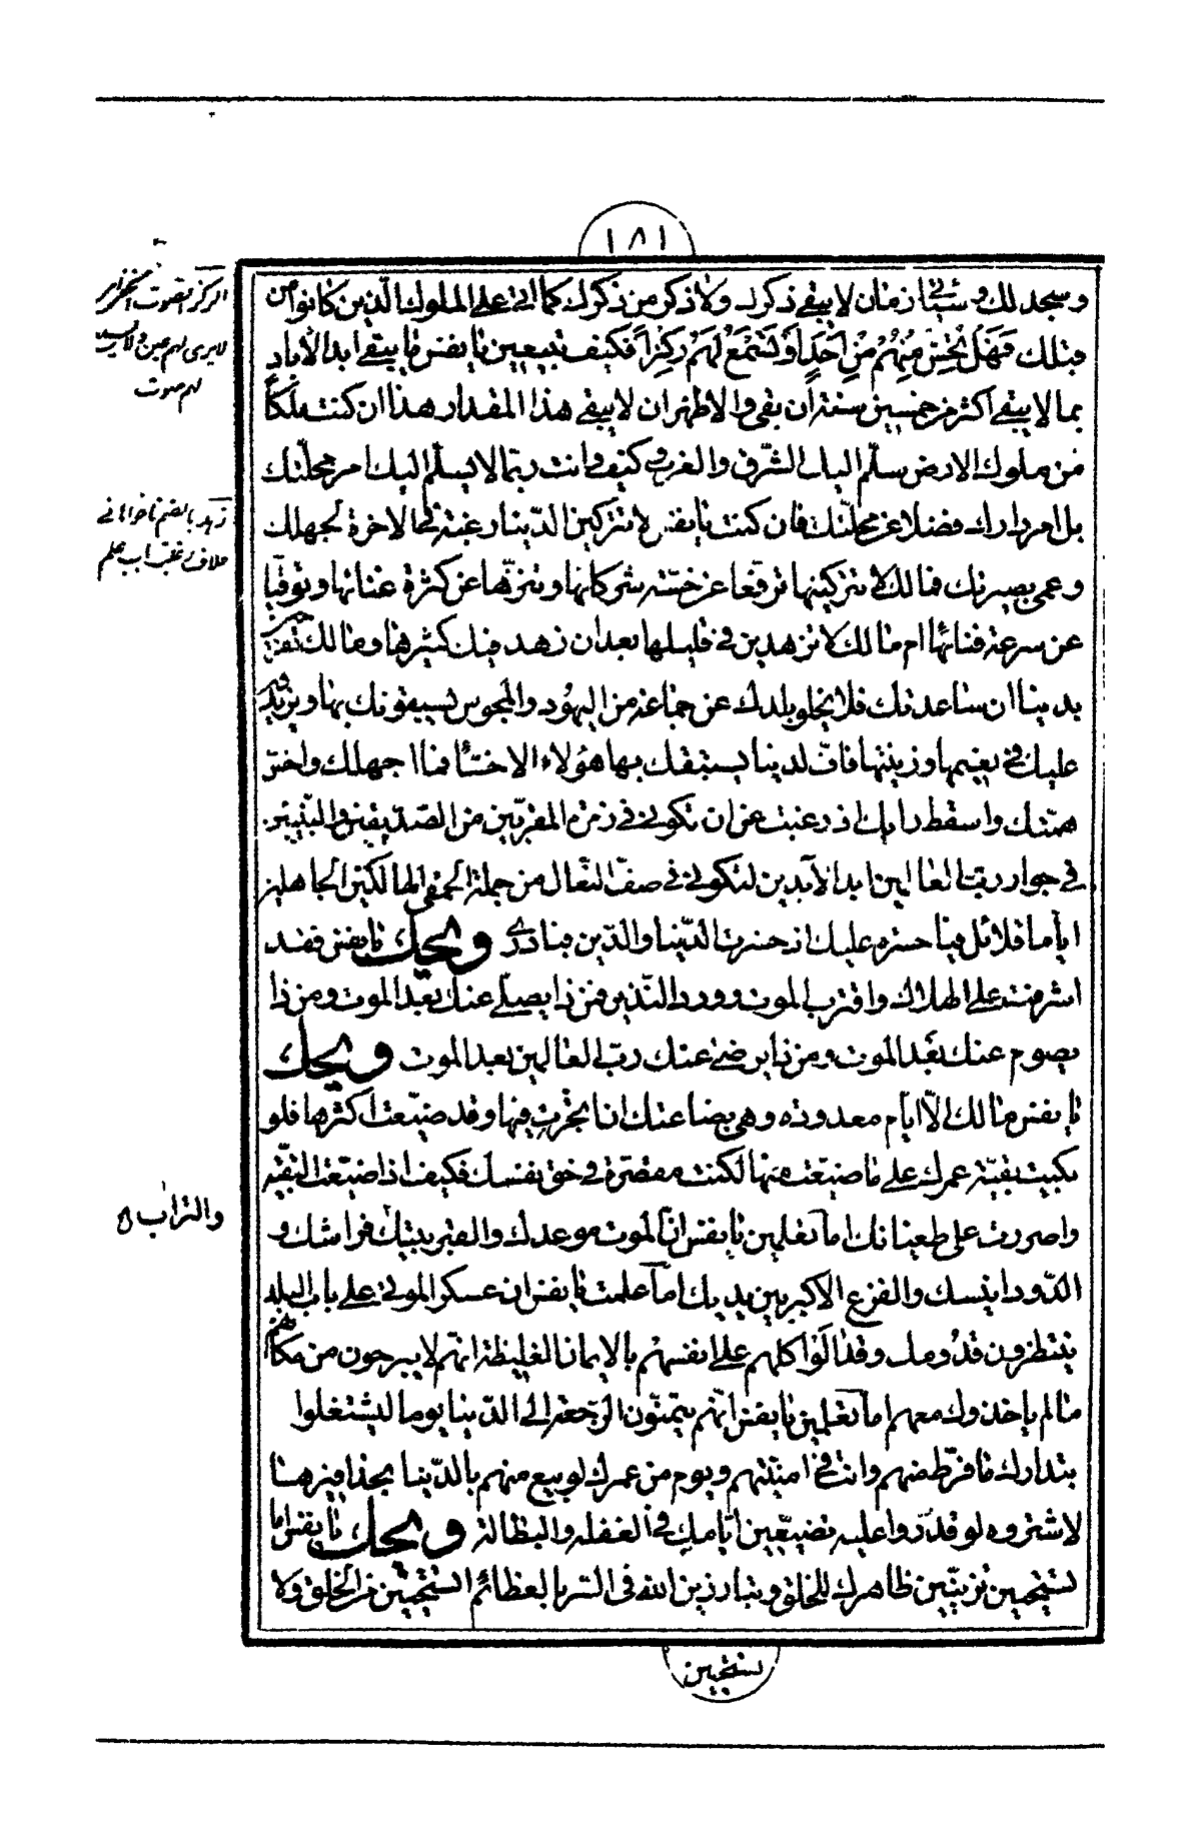 ١٨١
و سجد لك و سياتي زمان لا يبقى ذكرك ولا ذكر من ذكرك كما اتى على الملوك الذين كانوا من
قبلك فَهَلْ تُحِسُّ مِنْهُمْ مِنْ اَحَدٍ اَوْ تَسْمَعُ لَهُمْ رِكْزاً فكيف تبيعين يا نفس ما يبقى ابد الآباد
بما لا يبقى اكثر من خمسين سنة ان بقى والاظهر ان لا يبقى هذا المقدار هذا ان كنت ملكاً
من ملوك الارض سلّم اليك الشرق والغرب كيف وانت ربّما لا يسلّم اليك امر محلّتك
بل امر دارك فضلا عن محلّتك فان كنت يا نفس لا تتركين الدّنيا رغبة في الاخرة لجهلك
و عمى بصيرتك فما لك لا تتركينها ترفّعا عن خسّة شركائها و تنزّها عن كثرة عنائها و توقّيا
عن سرعة فنائها ام ما لك لا تزهدين في قليلها بعد ان زهد فيك كثيرها و ما لك تفرحين
بدنيا ان ساعدتك فلا يخلو بلدك عن جماعة من اليهود والمجوس يسبقونك بها و يزيدون
عليك في نعيمها و زينتها فافّ لدنيا يسبقك بها هؤلاء الاخسّا فما اجهلك و اخسّ
همّتك و اسقط رايك اذ رغبت عن ان تكوني في زمرة المقرّبين من الصدّيقين و النبيّين
في جوار ربّ العالمين ابد الآبدين لتكوني في صفّ النعال من جملة الحمقى الهالكين الجاهلين
ايّاما قلائل فيا حسرة عليك اذ خسرت الدّنيا والدّين فبادري ويحك يا نفس فقد
اشرفت على الهلاك واقترب الموت و ورد النّذير فمن ذا يصلّي عنك بعد الموت و من ذا
يصوم عنك بعد الموت و من ذا يرضى عنك ربّ العالمين بعد الموت ويحك
يا نفس ما لك الّا ايّام معدودة و هي بضاعتك ان اتّجرت فيها و قد ضيّعت اكثرها فلو
بكيت بقيّة عمرك على ما ضيّعت منها لكنت مقصّرة في حق نفسك فكيف اذا ضيّعت البقيّة
و اصررت على طغيانك اما تعلمين يا نفس انّ الموت موعدك والقبر بيتك فراشك و
الدّود انيسك والفزع الاكبر بين يديك اما علمت يا نفس ان عسكر الموتى على باب البلد
ينتظرون قدومك و قد آلوا كلهم على انفسهم بالايمان الغليظة انّهم لا يبرحون من مكانهم
ما لم ياخذوك معهم اما تعلمين يا نفس انّهم يتمنّون الرّجعة الى الدّنيا يوما ليشتغلوا
بتدارك ما فرّط منهم وانت في امنيّتهم و يوم من عمرك لو بيع منهم بالدّنيا بحذافيرها
لاشتروه لو قدروا عليه تضيّعين ايّامك في الغفلة والبطالة ويحك يا نفس اما
تستحيين تزيّنين ظاهرك للخلق و تبارزين الله في السّر بالعظائم افتستحيين من الخلق ولا
تستحيين
الركز الصوت الخفي
لا يرى لهم عين ولا
لهم صوت
زهد بالضم
خلاف رغب
والتراب